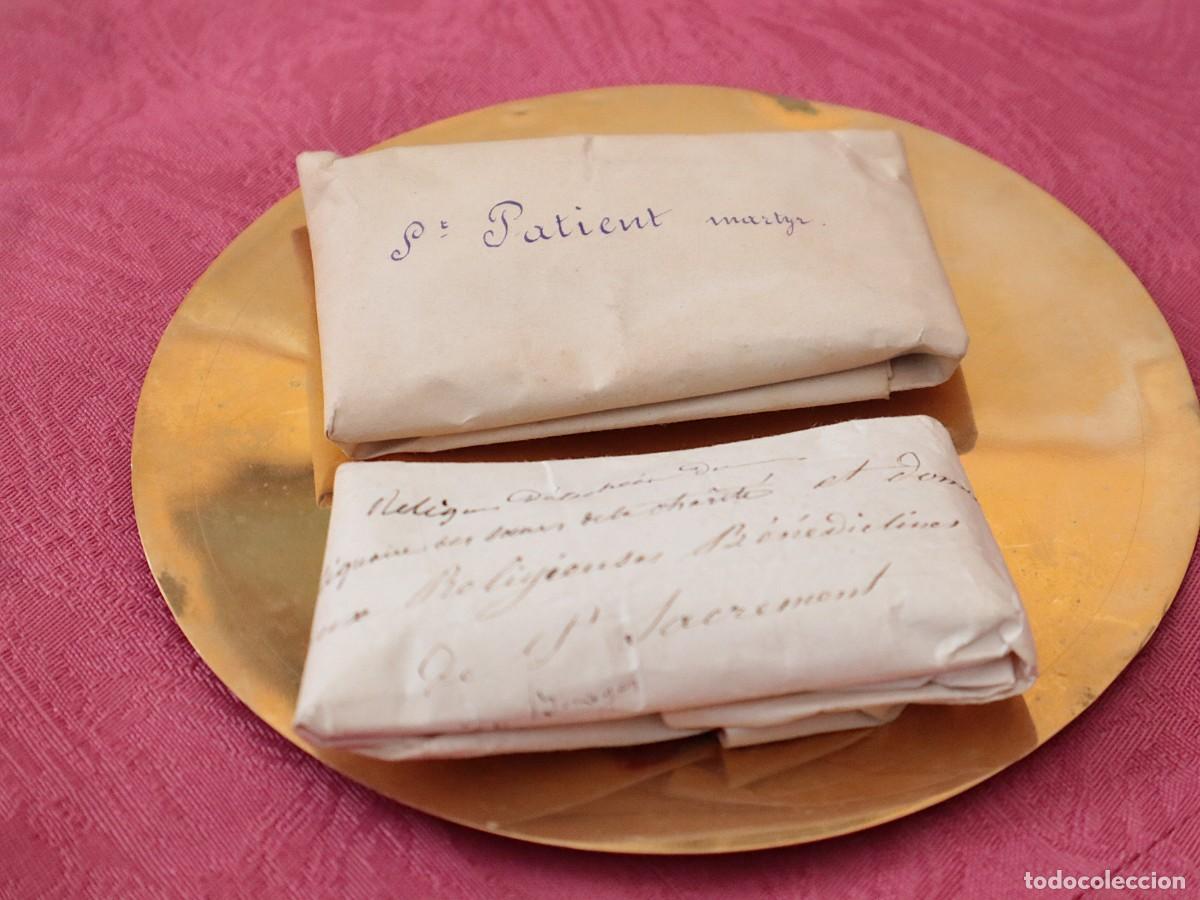 St Patient martyr.
Relique détachée du
des sœurs de la charité et donn
Religieuses Bénédictines
de St Sacrement
todocoleccion